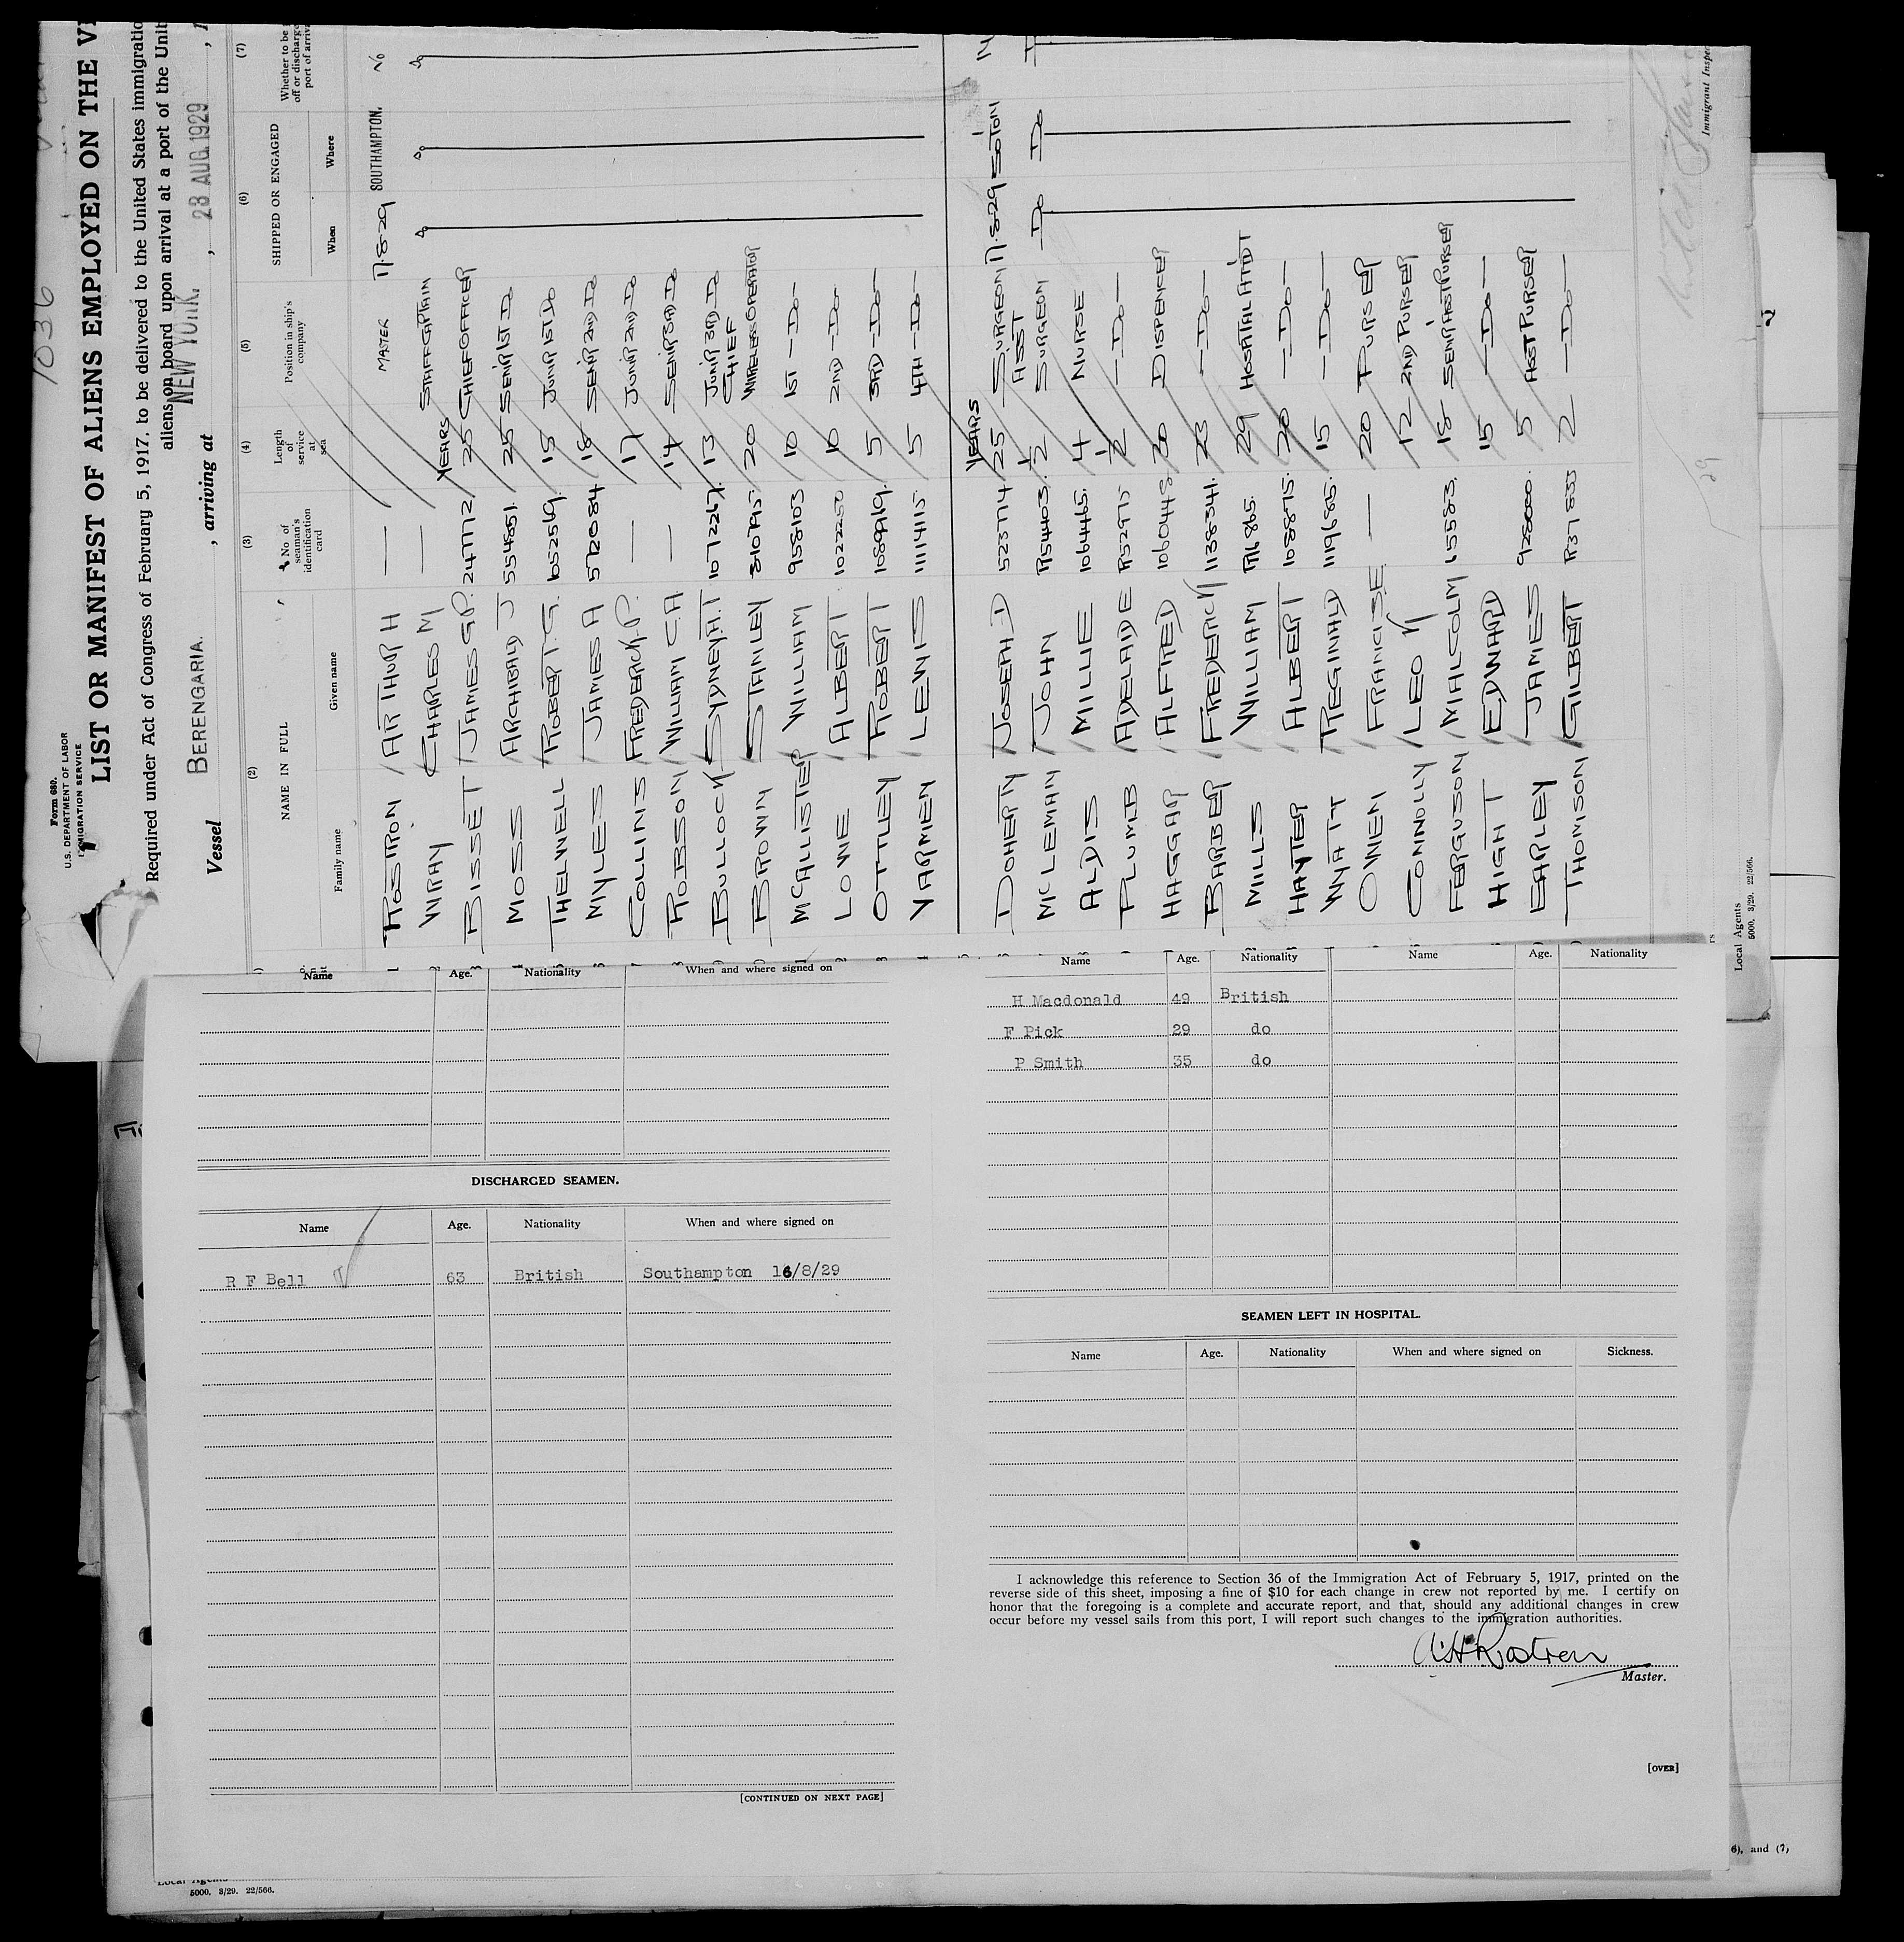 1036
Form 680.
U.S. DEPARTMENT OF LABOR
IMMIGRATION SERVICE
LIST OR MANIFEST OF ALIENS EMPLOYED ON THE
Required under Act of Congress of February 5, 1917, to be delivered to the United States immigratio
aliens on board upon arrival at a port of the Unit
Vessel BERENGARIA. , arriving at NEW YORK. , 23 AUG 1929
(2) (3) (4) (5) (6) (7)
NAME IN FULL No of seaman's identification card Length of service at sea Position in ship's company SHIPPED OR ENGAGED Whether to be off or discharge port of arriv
Family name Given name When Where
ROSTRON ARTHUR H — MASTER 17.8.29 SOUTHAMPTON. No
WRAY CHARLES M — STAFF CAPTAIN Do Do Do
YEARS
BISSET JAMES G.P. 247772 25 CHIEF OFFICER
MOSS ARCHIBALD J 554851. 25 SENR 1ST DO
THELWELL ROBERT G. 1052569. 15 JUNR 1ST DO
MYLES JAMES A 572084 18 SENR 2ND DO
COLLINS FREDERICK.P. — 17 JUNR 2ND DO
ROBSON WILLIAM C.A — 14 SENR 3RD DO
BULLOCK SYDNEY.H.T 1072267. 13 JUNR 3RD DO
BROWN STANLEY 310795. 20 CHIEF WIRELESS OPERATOR
McALLISTER WILLIAM 958103 10 1ST — DO —
LOWE ALBERT. 1022250 10 2ND — DO —
OTTLEY ROBERT 1089919. 5 3RD — DO —
VARMEN LEWIS 1111415 5 4TH — DO —
YEARS
DOHERTY JOSEPH D 523774 25 SURGEON 17.8.29 SOTON
McLEMAN JOHN R54403. 1/2 ASST SURGEON Do Do
ALDIS MILLIE 1064465. 4 NURSE
PLUMB ADELAIDE R52975 1/2 — DO —
HAGGAR ALFRED 1060448. 20 DISPENCER
BARBER FREDERICK 1138341. 23 — DO —
MILLS WILLIAM 776865. 29 HOSPITAL ATTDT
HAYTER ALBERT 1058875. 20 — DO —
WYATT REGINALD 1119685. 15 — DO —
OWEN FRANCIS E — 20 PURSER
CONNOLLY LEO 12 2ND PURSER
FERGUSON MALCOLM 655583. 18 SENR ASST PURSER
HIGHT EDWARD 15 — DO —
EARLEY JAMES 928000. 5 ASST PURSER
THOMSON GILBERT R37833 2 — DO —
Immigrant Inspe
Local Agents
5000. 3/29. 22/566.
Name Age. Nationality When and where signed on
DISCHARGED SEAMEN.
Name Age. Nationality When and where signed on
R F Bell 63 British Southampton 16/8/29
[CONTINUED ON NEXT PAGE]
Name Age. Nationality Name Age. Nationality
H Macdonald 49 British
F Pick 29 do
P Smith 35 do
SEAMEN LEFT IN HOSPITAL.
Name Age. Nationality When and where signed on Sickness.
I acknowledge this reference to Section 36 of the Immigration Act of February 5, 1917, printed on the
reverse side of this sheet, imposing a fine of $10 for each change in crew not reported by me. I certify on
honor that the foregoing is a complete and accurate report, and that, should any additional changes in crew
occur before my vessel sails from this port, I will report such changes to the immigration authorities.
A H Rostron
Master.
[OVER]
6), and (7,
Local Agents
5000. 3/29. 22/566.